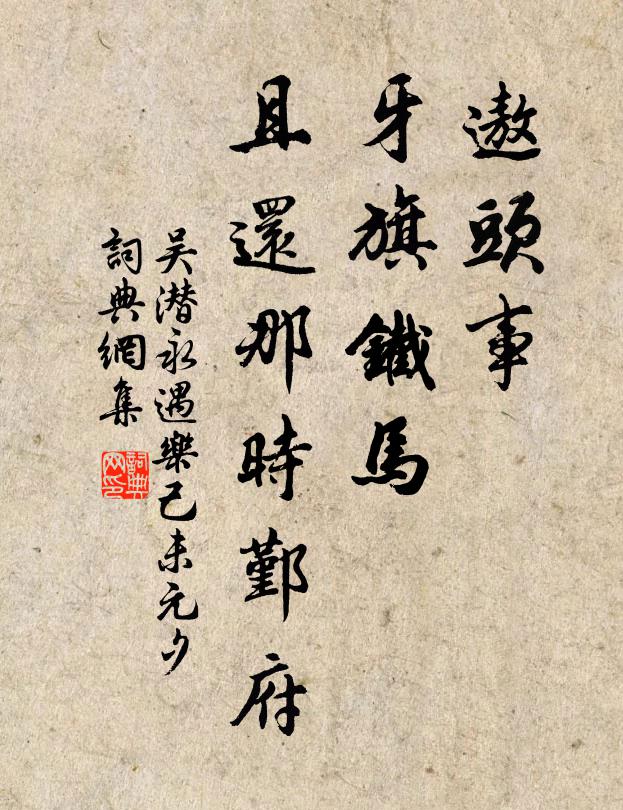 遨頭事
牙旗鐵馬
且還那時鄞府
吴潛永遇樂己未元夕
詞典網集
詞典网印